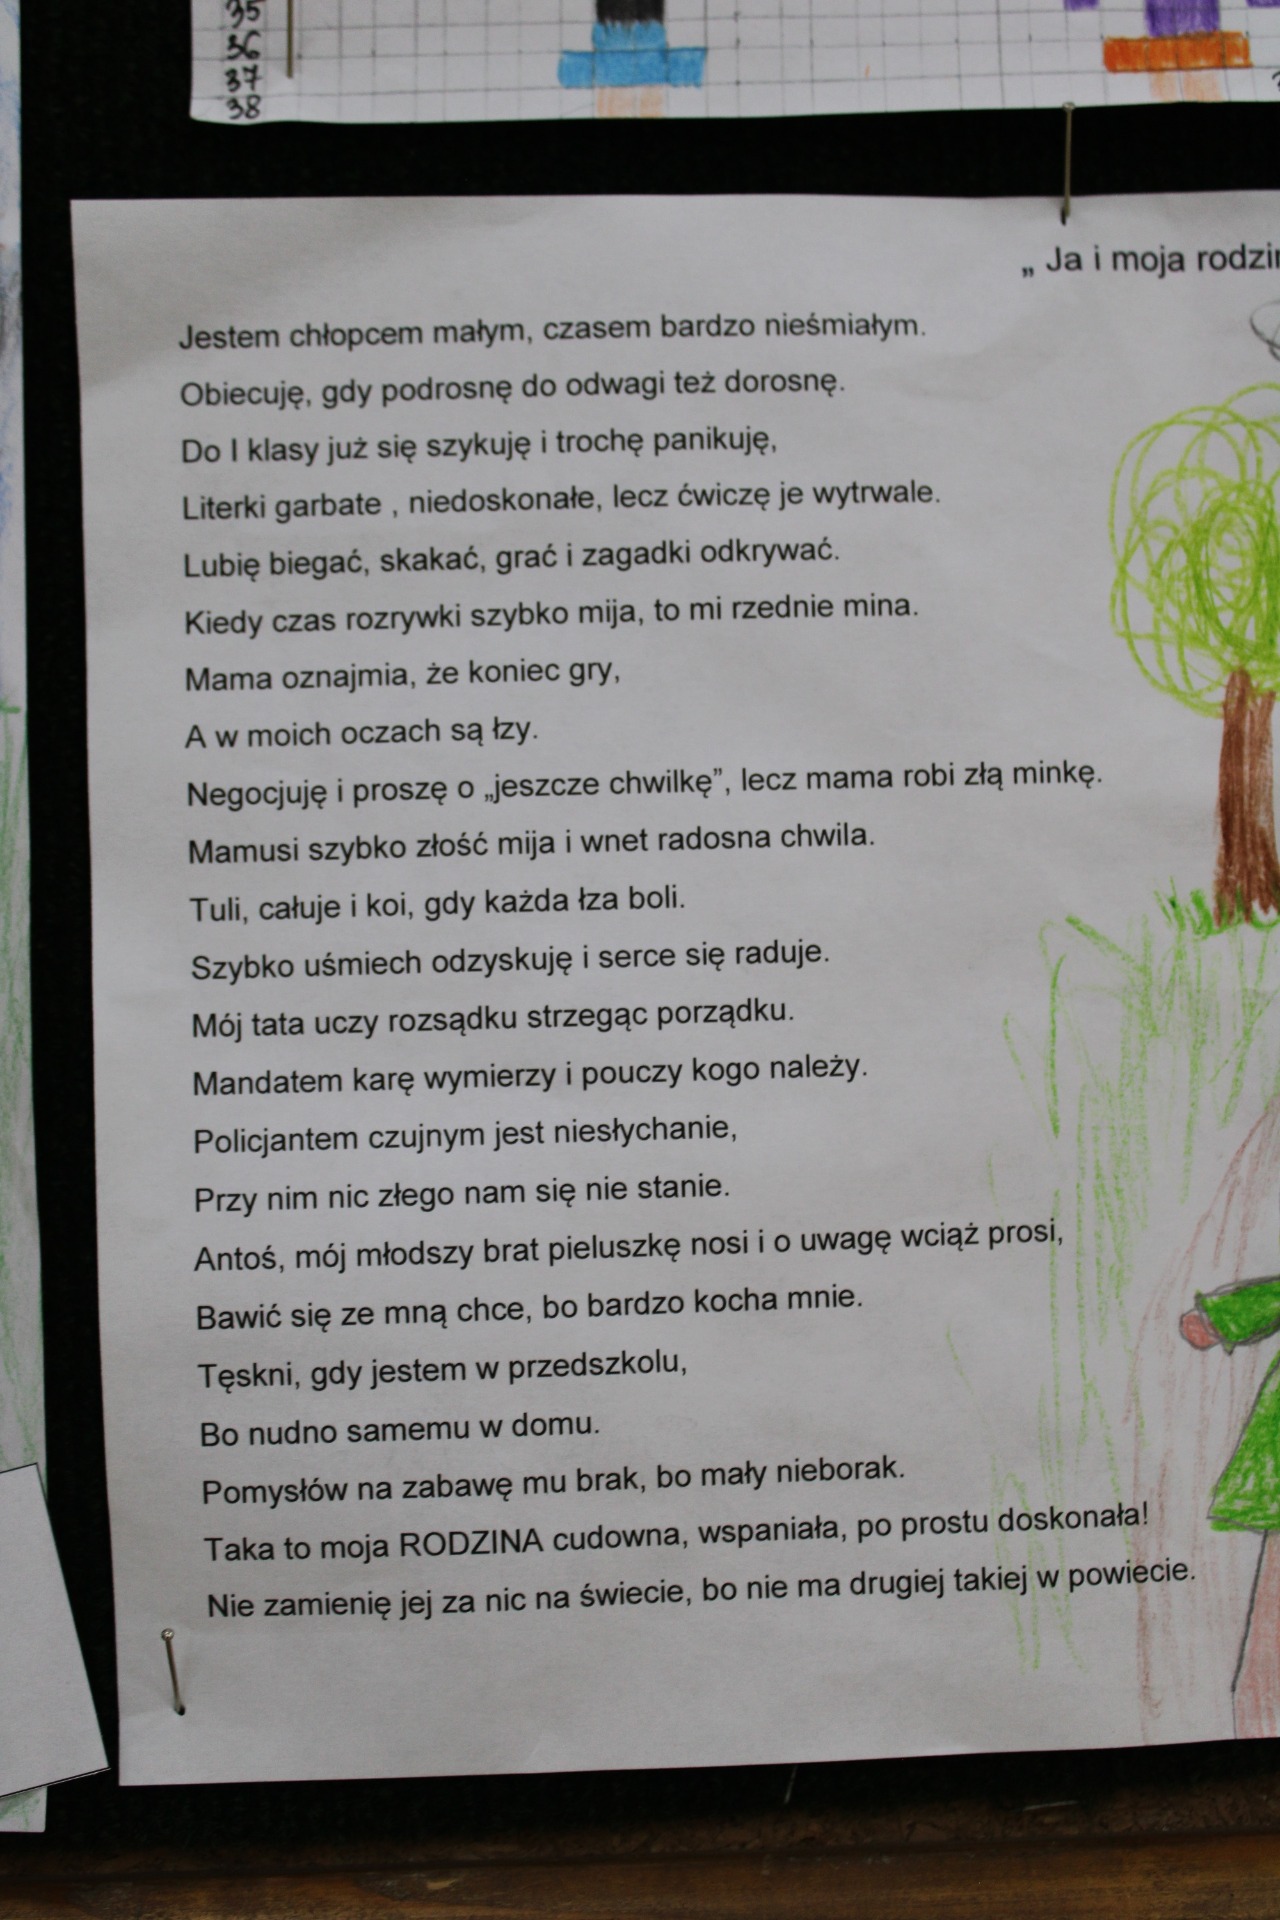 35
36
37
38
„ Ja i moja
Jestem chłopcem małym, czasem bardzo nieśmiałym.
Obiecuję, gdy podrosnę do odwagi też dorosnę.
Do I klasy już się szykuję i trochę panikuję,
Literki garbate , niedoskonałe, lecz ćwiczę je wytrwale.
Lubię biegać, skakać, grać i zagadki odkrywać.
Kiedy czas rozrywki szybko mija, to mi rzednie mina.
Mama oznajmia, że koniec gry,
A w moich oczach są łzy.
Negocjuję i proszę o „jeszcze chwilkę”, lecz mama robi złą minkę.
Mamusi szybko złość mija i wnet radosna chwila.
Tuli, całuje i koi, gdy każda łza boli.
Szybko uśmiech odzyskuję i serce się raduje.
Mój tata uczy rozsądku strzegąc porządku.
Mandatem karę wymierzy i pouczy kogo należy.
Policjantem czujnym jest niesłychanie,
Przy nim nic złego nam się nie stanie.
Antoś, mój młodszy brat pieluszkę nosi i o uwagę wciąż prosi,
Bawić się ze mną chce, bo bardzo kocha mnie.
Tęskni, gdy jestem w przedszkolu,
Bo nudno samemu w domu.
Pomysłów na zabawę mu brak, bo mały nieborak.
Taka to moja RODZINA cudowna, wspaniała, po prostu doskonała!
Nie zamienię jej za nic na świecie, bo nie ma drugiej takiej w powiecie.